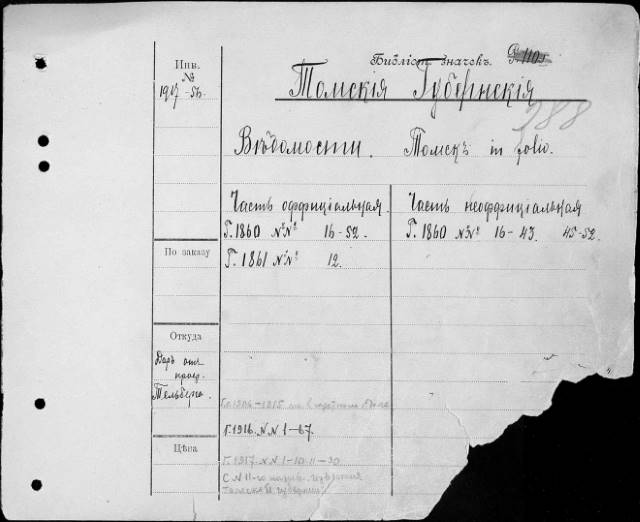 Инв. №
1917-56
Библіот. значекъ.
Томскія Губернскія
288
Вѣдомости. Томскъ in folio.
Часть оффиціальная.
Г. 1860 №№ 16-52.
Г. 1861 №№ 12.
Часть неоффиціальная
Г. 1860 №№ 16-43. 45-52.
По заказу
Откуда
Даръ отъ
проф.
Тельберга.
Г. 1916. N.N 1-67.
Цѣна
Г. 1917. N.N 1-10. 11-30
С N 11-го